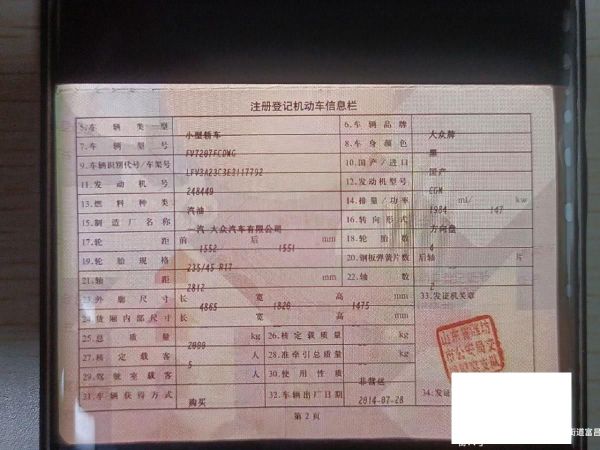 注册登记机动车信息栏
5.车辆类型 小型轿车 6.车辆品牌 大众牌
7.车辆型号 FV7207FCDWG 8.车身颜色 黑
9.车辆识别代号/车架号 LFV3A23C3E3117792 10.国产/进口 国产
11.发动机号 248449 12.发动机型号 CGM
13.燃料种类 汽油 14.排量/功率 1984 ml/ 147 kw
15.制造厂名称 一汽-大众汽车有限公司 16.转向形式 方向盘
17.轮距 前 1552 后 1551 mm 18.轮胎数 4
19.轮胎规格 235/45 R17 20.钢板弹簧片数 后轴 片
21.轴距 2812 mm 22.轴数 2
23.外廓尺寸 长 4865 宽 1820 高 1475 mm 33.发证机关章
24.货厢内部尺寸 长 宽 高 mm
25.总质量 2000 kg 26.核定载质量 kg
27.核定载客 5 人 28.准牵引总质量 kg
29.驾驶室载客 人 30.使用性质 非营运
31.车辆获得方式 购买 32.车辆出厂日期 2014-07-28 34.发证
第2页
街道富昌